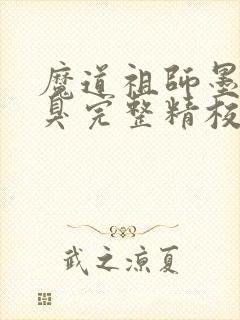 魔道祖師墨
臭完整精校
武之涼夏